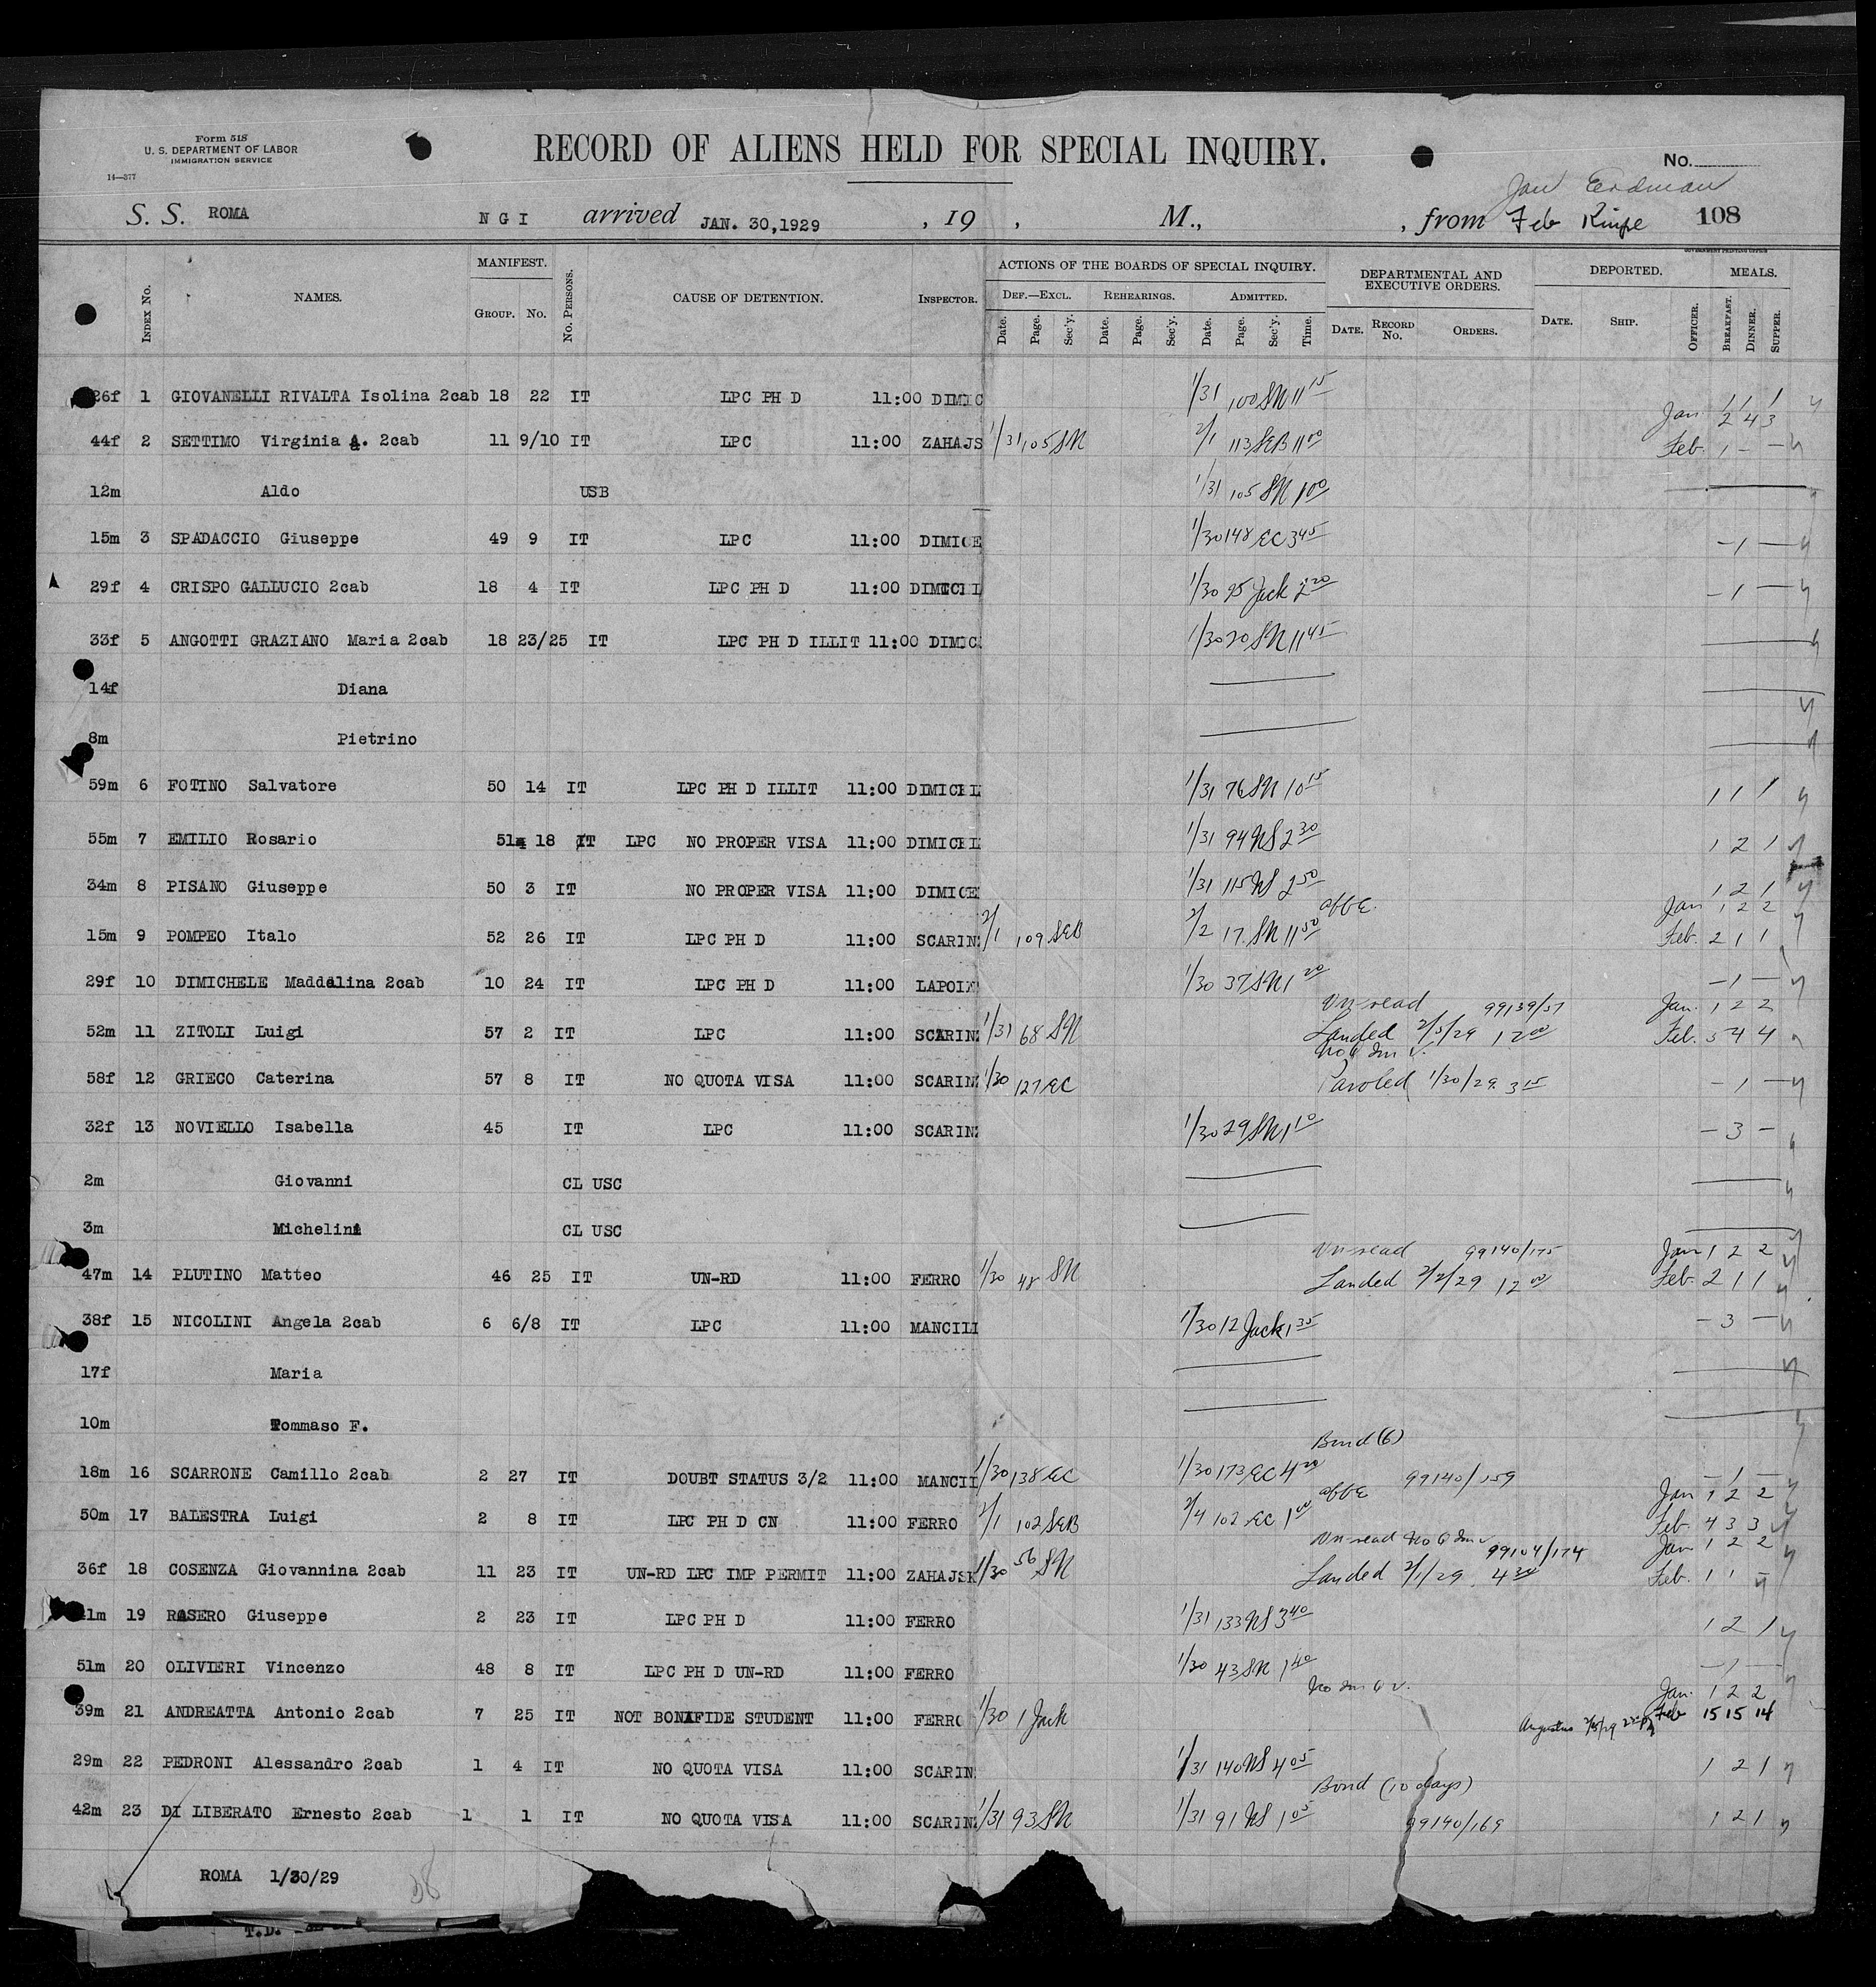 Form 518
U. S. DEPARTMENT OF LABOR
IMMIGRATION SERVICE
14—377
RECORD OF ALIENS HELD FOR SPECIAL INQUIRY.
No.
Jan Erdman
S. S. ROMA N G I arrived JAN. 30, 1929 , 19 , M., , from Feb 108
GOVERNMENT PRINTING OFFICE
INDEX NO. NAMES. MANIFEST. GROUP. NO. NO. PERSONS. CAUSE OF DETENTION. INSPECTOR. ACTIONS OF THE BOARDS OF SPECIAL INQUIRY. DEPARTMENTAL AND EXECUTIVE ORDERS. DEPORTED. MEALS.
DEF.—EXCL. REHEARINGS. ADMITTED.
Date. Page. Sec'y. Date. Page. Sec'y. Date. Page. Sec'y. Time. DATE. RECORD NO. ORDERS. DATE. SHIP. OFFICER. BREAKFAST. DINNER. SUPPER.
26f 1 GIOVANELLI RIVALTA Isolina 2cab 18 22 IT LPC PH D 11:00 DIMIC 1/31 100 SN 11 15 1 1 1
Jan 2 4 3
44f 2 SETTIMO Virginia A. 2cab 11 9/10 IT LPC 11:00 ZAHAJS 1/31 105 SN 2/1 113 SEB 11 00 Feb. 1 — —
12m Aldo USB 1/31 105 SN 1 00
15m 3 SPADACCIO Giuseppe 49 9 IT LPC 11:00 DIMICE 1/30 148 EC 3 45 — 1 —
29f 4 CRISPO GALLUCIO 2cab 18 4 IT LPC PH D 11:00 DIMICEL 1/30 95 Jack 2 20 — 1 —
33f 5 ANGOTTI GRAZIANO Maria 2cab 18 23/25 IT LPC PH D ILLIT 11:00 DIMIC 1/30 20 SN 11 45
14f Diana
8m Pietrino
59m 6 FOTINO Salvatore 50 14 IT LPC PH D ILLIT 11:00 DIMICEL 1/31 76 SN 10 15 1 1 1
55m 7 EMILIO Rosario 51 18 IT LPC NO PROPER VISA 11:00 DIMICEL 1/31 94 NS 2 30 1 2 1
34m 8 PISANO Giuseppe 50 3 IT NO PROPER VISA 11:00 DIMICE 1/31 115 NS 2 50 1 2 1
Jan 1 2 2
15m 9 POMPEO Italo 52 26 IT LPC PH D 11:00 SCARIN 2/1 109 SEB 2/2 17 SN 11 50 Feb. 2 1 1
29f 10 DIMICHELE Maddalina 2cab 10 24 IT LPC PH D 11:00 LAPOIN 1/30 37 SN 1 20 — 1 —
Un-read 99139/51 Jan. 1 2 2
52m 11 ZITOLI Luigi 57 2 IT LPC 11:00 SCARIN 1/31 68 SN Landed 2/5/29 12 00 Feb. 5 4 4
58f 12 GRIECO Caterina 57 8 IT NO QUOTA VISA 11:00 SCARIN 1/30 127 EC Paroled 1/30/29 3 15 — 1 —
32f 13 NOVIELLO Isabella 45 IT LPC 11:00 SCARIN 1/30 29 SN 1 10 — 3 —
2m Giovanni CL USC
3m Michelina CL USC
Un-read 99140/175 Jan 1 2 2
47m 14 PLUTINO Matteo 46 25 IT UN-RD 11:00 FERRO 1/30 48 SN Landed 2/2/29 12 00 Feb. 2 1 1
38f 15 NICOLINI Angela 2cab 6 6/8 IT LPC 11:00 MANCILI 1/30 12 Jack 1 35 — 3 —
17f Maria
10m Tommaso F.
Bond (6)
18m 16 SCARRONE Camillo 2cab 2 27 IT DOUBT STATUS 3/2 11:00 MANCII 1/30 138 EC 1/30 173 EC 4 20 99140/159 — 1 —
Jan 1 2 2
50m 17 BALESTRA Luigi 2 8 IT LPC PH D CN 11:00 FERRO 2/1 102 SEB 2/4 102 EC 1 00 Feb. 4 3 3
Un-read 99104/174 Jan 1 2 2
36f 18 COSENZA Giovannina 2cab 11 23 IT UN-RD LPC IMP PERMIT 11:00 ZAHAJSK 1/30 56 SN Landed 2/1/29 4 30 Feb. 1 1 —
41m 19 RASERO Giuseppe 2 23 IT LPC PH D 11:00 FERRO 1/31 133 NS 3 40 1 2 1
51m 20 OLIVIERI Vincenzo 48 8 IT LPC PH D UN-RD 11:00 FERRO 1/30 43 SN 1 40 — 1 —
Jan. 1 2 2
39m 21 ANDREATTA Antonio 2cab 7 25 IT NOT BONAFIDE STUDENT 11:00 FERRO 1/30 1 Jack Augustus Feb 15 15 14
29m 22 PEDRONI Alessandro 2cab 1 4 IT NO QUOTA VISA 11:00 SCARIN 1/31 140 NS 4 05 1 2 1
Bond (10 days)
42m 23 DI LIBERATO Ernesto 2cab 1 1 IT NO QUOTA VISA 11:00 SCARIN 1/31 93 SN 1/31 91 NS 1 05 99140/169 1 2 1
ROMA 1/30/29